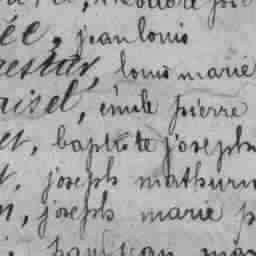 ée, jean louis
estar, louis marie
aisel, émile pierre
et, baptiste joseph
t, joseph mathurin
n, joseph marie p